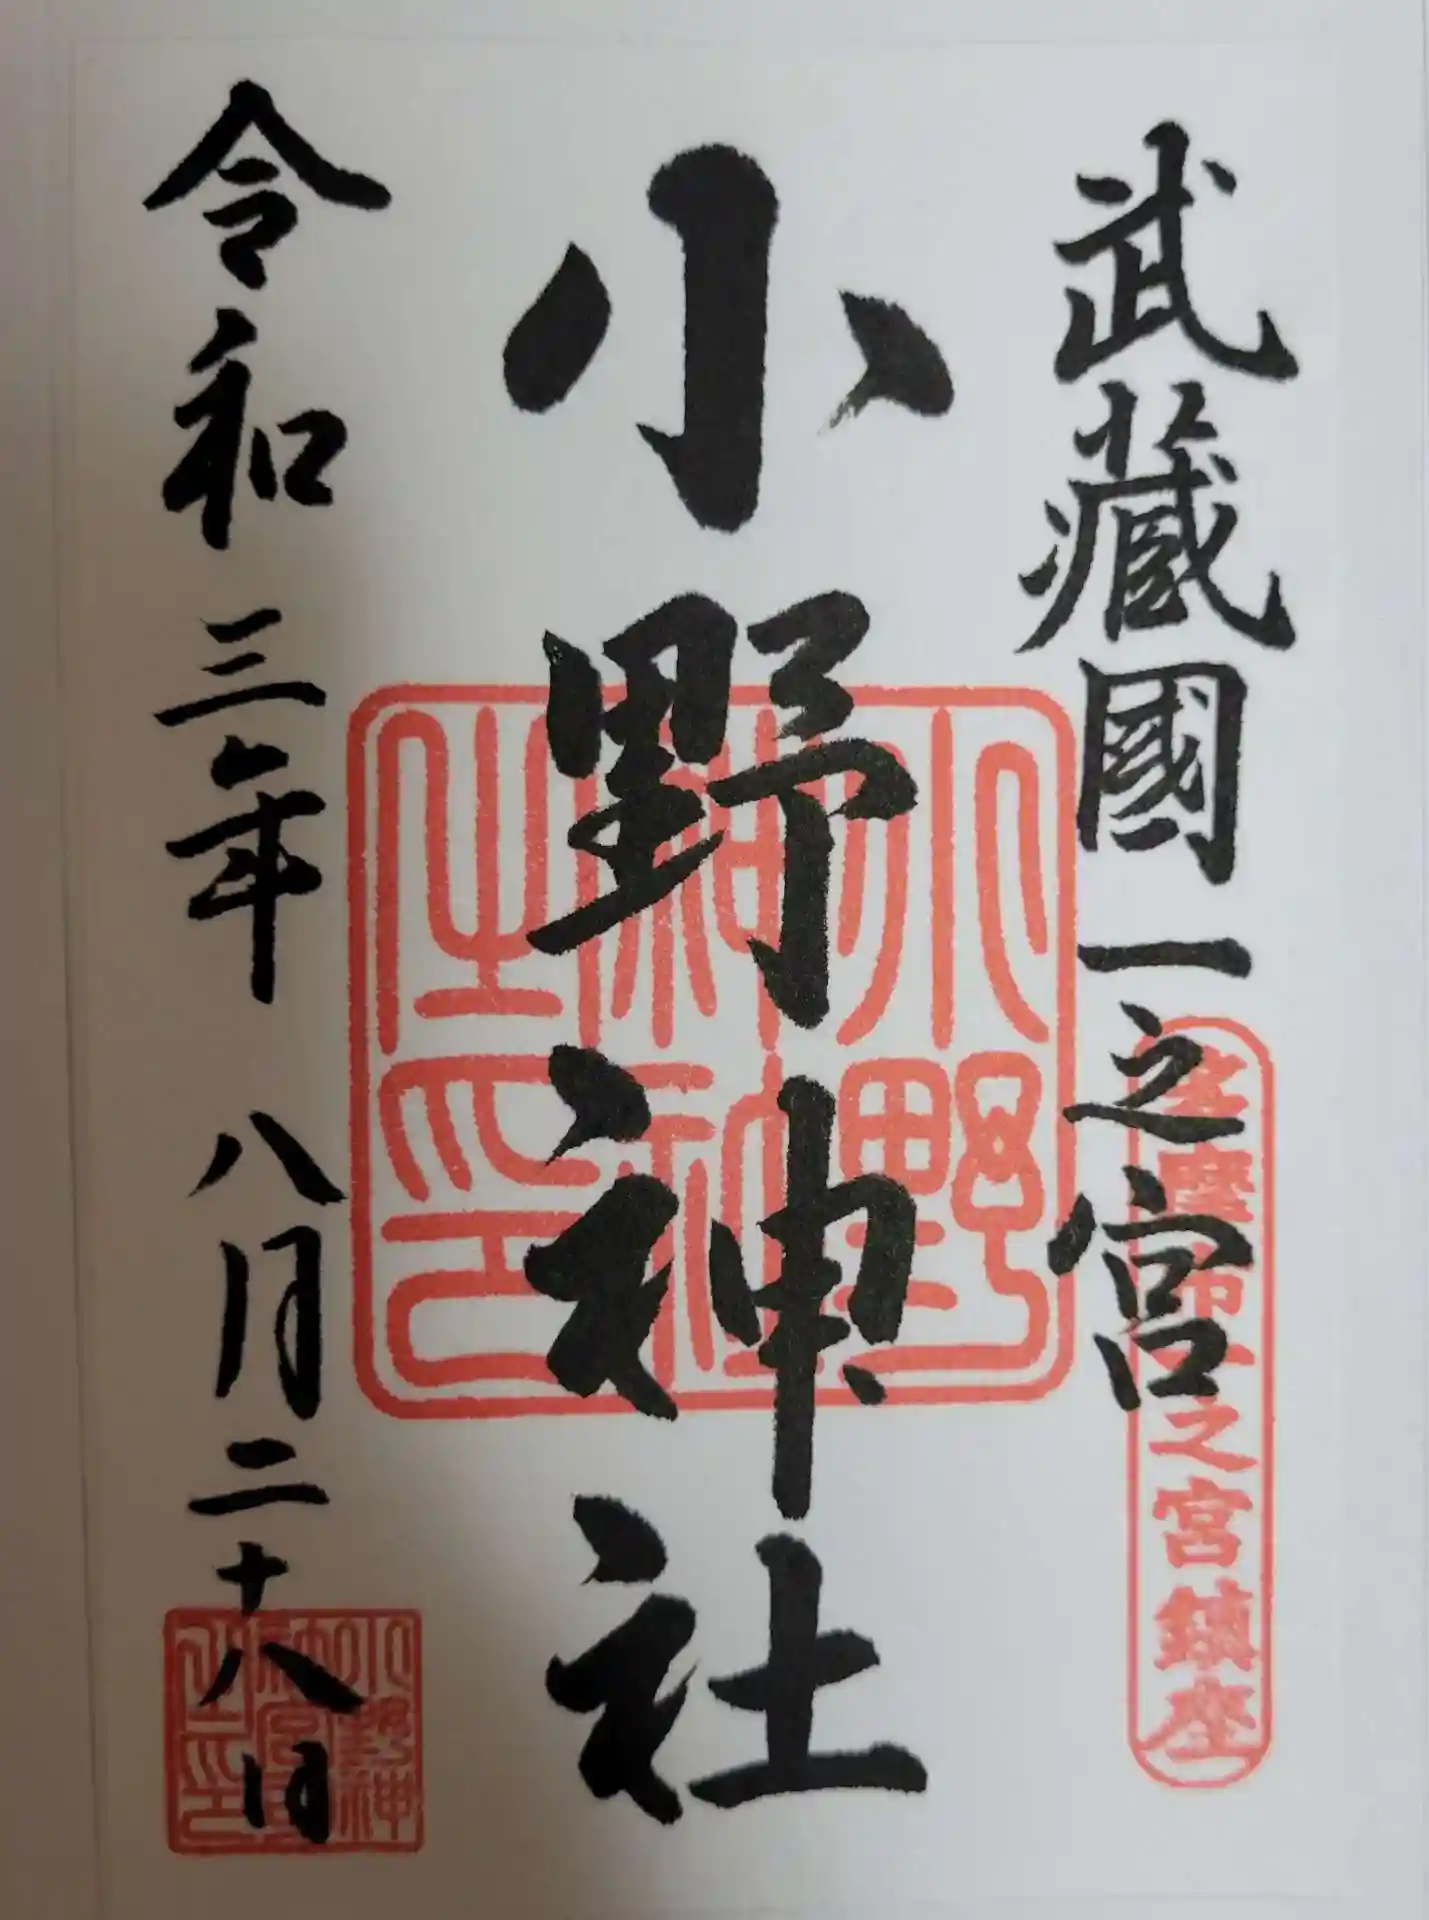 武藏國一之宮
多摩市一之宮鎮座
小野神社
小野神社之印
令和三年 八月二十八日